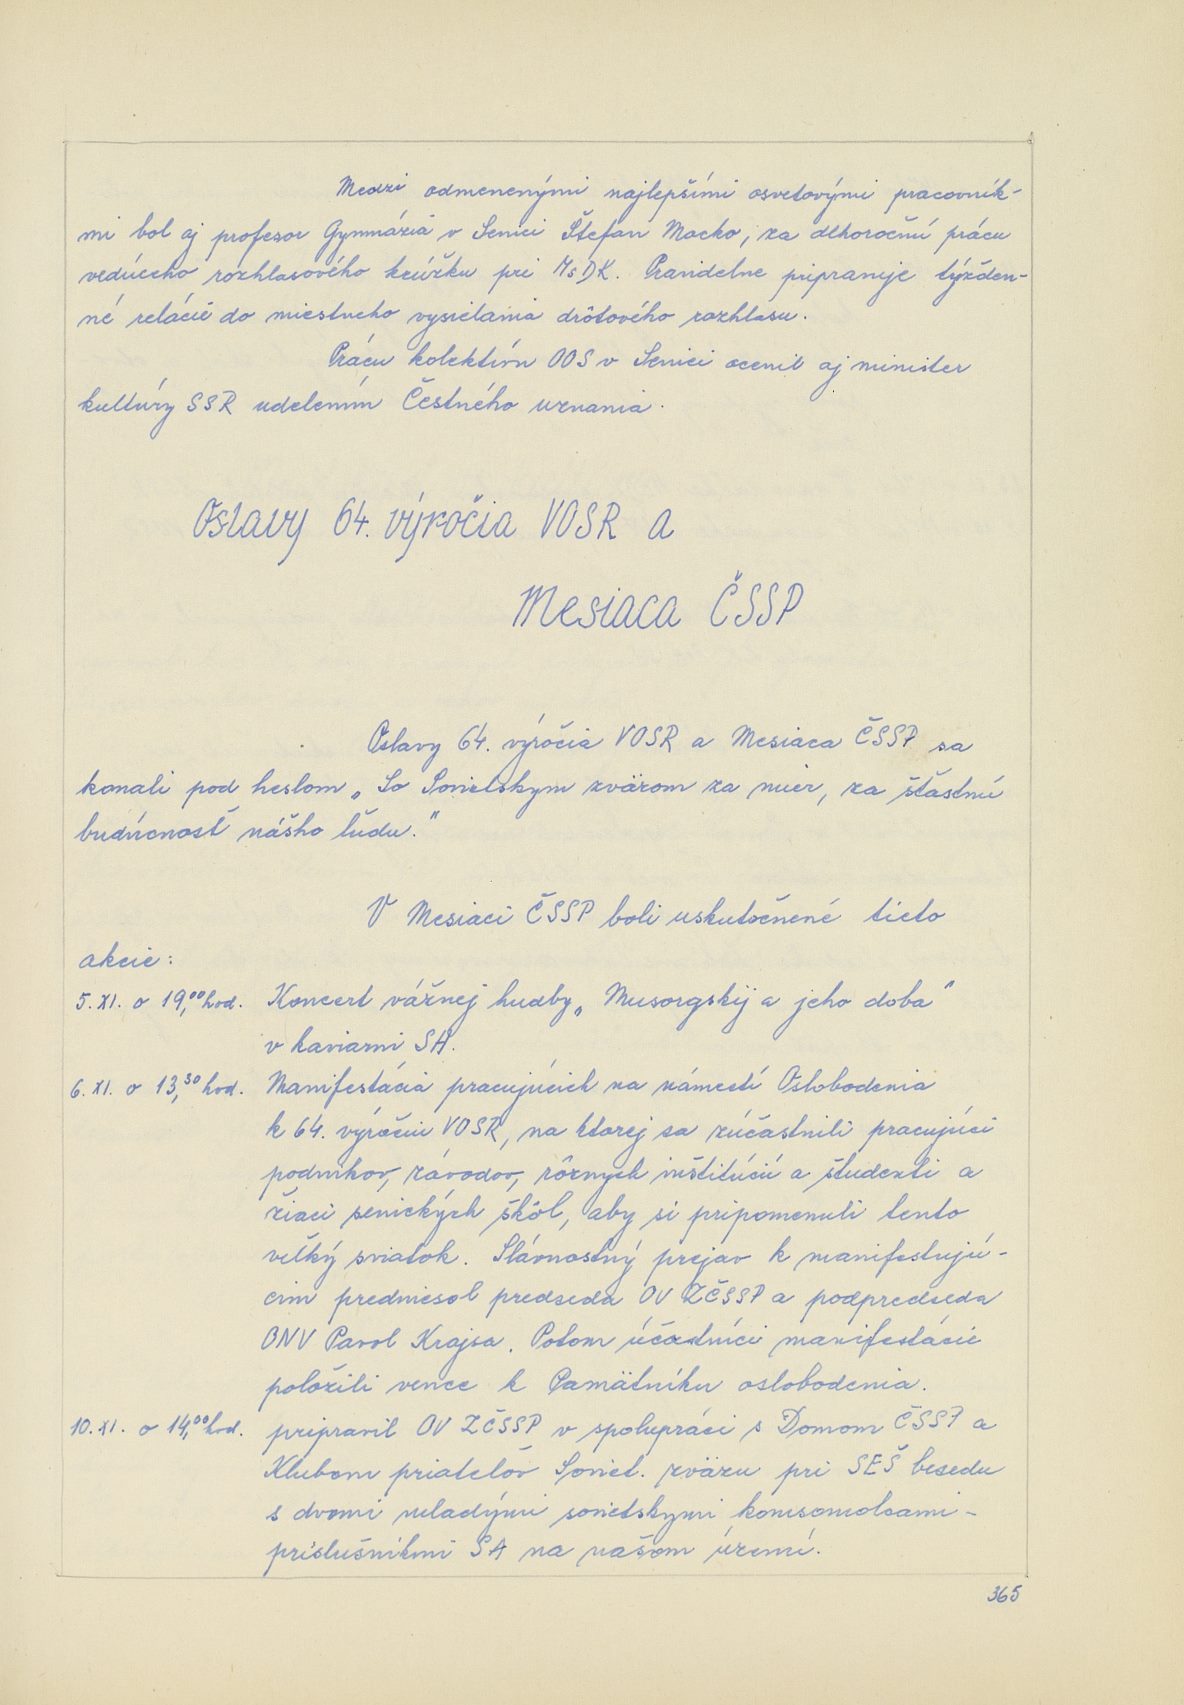 Medzi odmenenými najlepšími osvetovými pracovník-
mi bol aj profesor Gymnázia v Senici Štefan Macko, za dlhoročnú prácu
vedúceho rozhlasového krúžku pri MsDK. Pravidelne pripravuje týžden-
né relácie do miestneho vysielania drôtového rozhlasu.
Prácu kolektívu OOS v Senici ocenil aj minister
kultúry SSR udelením Čestného uznania.
Oslavy 64. výročia VOSR a
Mesiaca ČSSP
Oslavy 64. výročia VOSR a Mesiaca ČSSP sa
konali pod heslom „So Sovietskym zväzom za mier, za šťastnú
budúcnosť nášho ľudu."
V Mesiaci ČSSP boli uskutočnené tieto
akcie:
5. XI. o 19,00 hod. Koncert vážnej hudby „Musorgskij a jeho doba"
v kaviarni SA.
6. XI. o 13,30 hod. Manifestácia pracujúcich na námestí Oslobodenia
k 64. výročiu VOSR, na ktorej sa zúčastnili pracujúci
podnikov, závodov, rôznych inštitúcií a študenti a
žiaci senických škôl, aby si pripomenuli tento
veľký sviatok. Slávnostný prejav k manifestujú-
cim predniesol predseda OV ZČSSP a podpredseda
ONV Pavol Krajsa. Potom účastníci manifestácie
položili vence k Pamätníku oslobodenia.
10. XI. o 14,00 hod. pripravil OV ZČSSP v spolupráci s Domom ČSSP a
Klubom priateľov Soviet. zväzu pri SEŠ besedu
s dvomi mladými sovietskymi komsomolcami -
príslušníkmi SA na našom území.
365